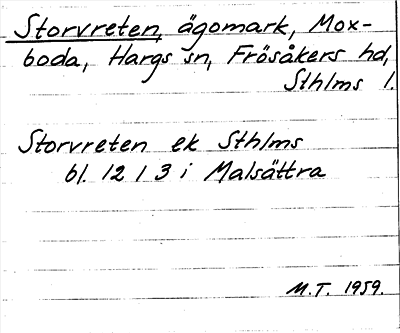 Storvreten, ägomark, Mox-
boda, Hargs sn, Frösåkers hd,
Sthlms l.
Storvreten ek Sthlms
bl. 12 1 3 i Malsättra
M.T. 1959.